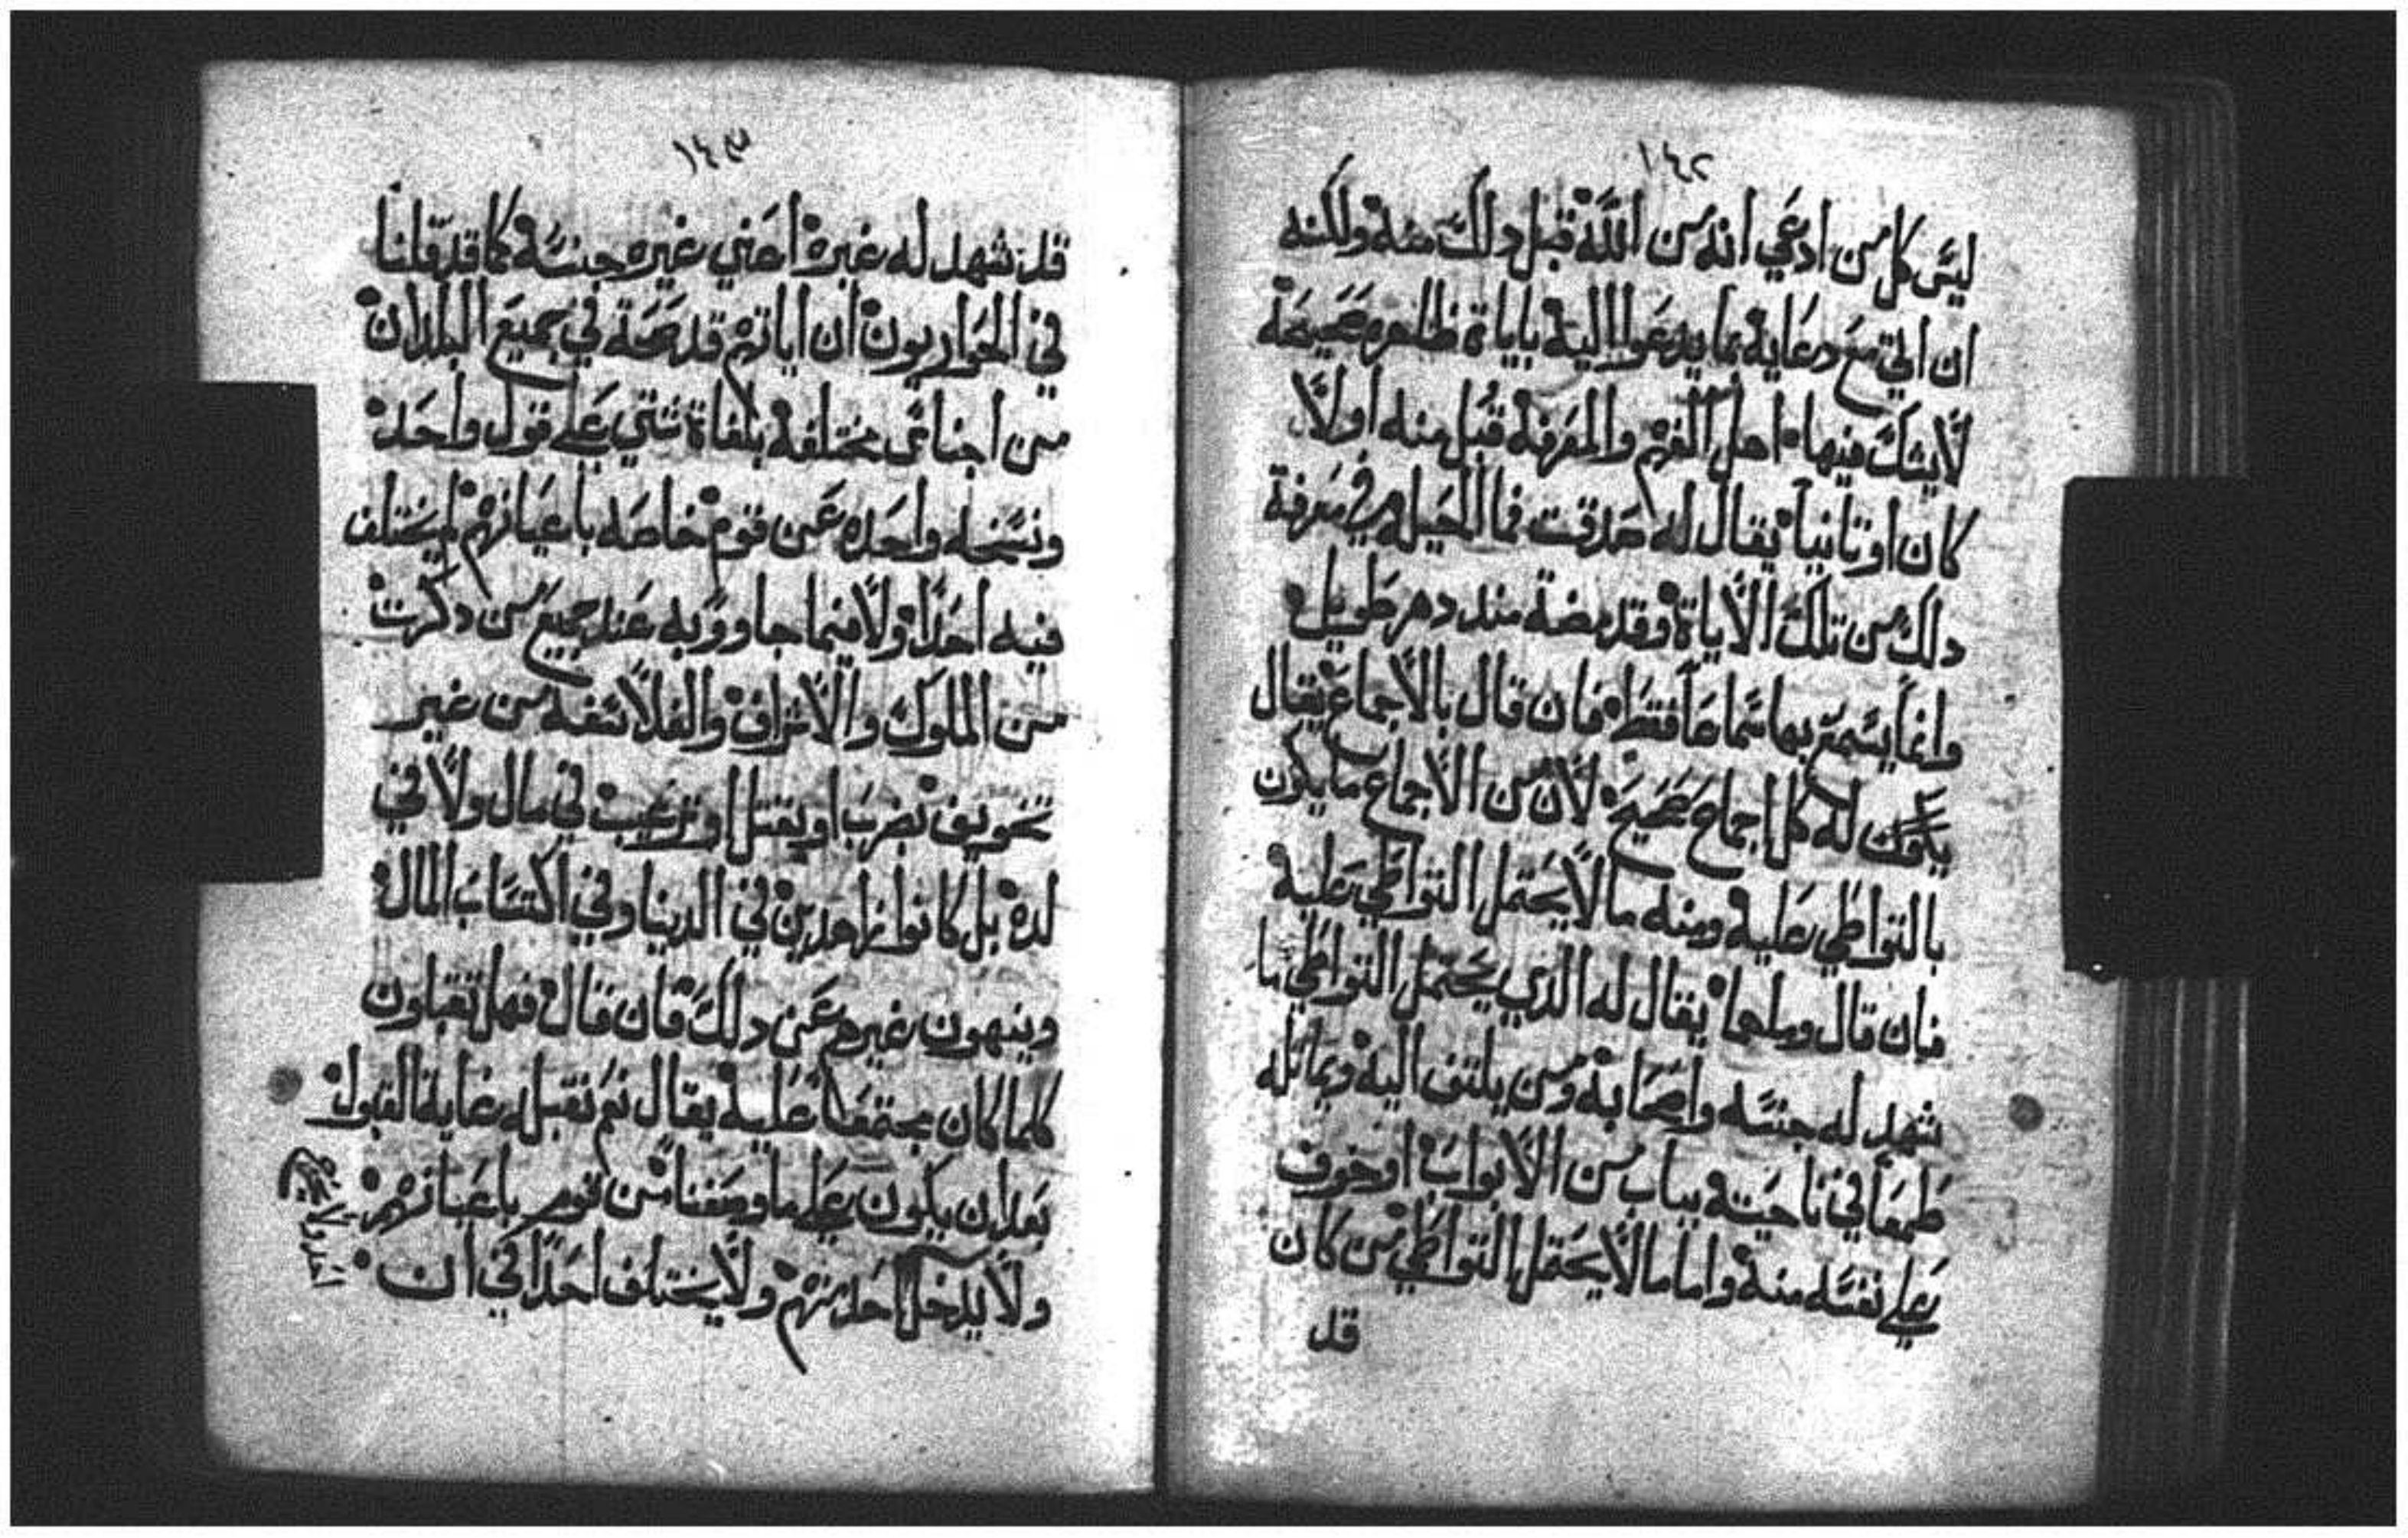 ١٤٢
ليس كل من ادعي انه من الله قبل دلك منه ولكنه
ان اتي مع دعايه بما يدعوا اليه باياة ظاهره صحيحة
لا يشك فيها اهل الفهم والمعرفة قبل منه اولا
كان او تانيا يقال له صدقت فما الحيله في معرفة
دلك من تلك الاياة وقد مضة مند دهر طويل
وانما يسمع بها سماعا فقط فان قال بالاجماع يقال
له كل اجماع صحيح لان من الاجماع ما يكون
بالتواطي عليه ومنه ما لا يحتمل التواطي عليه
فان قال وما هما يقال له الذي يحتمل التواطي ما
شهد له جنسه واصحابه ومن يلتف اليه ويماتله
طمعا في ناحيته بباب من الابواب او خوف
علي نفسه منه واما ما لا يحتمل التواطي من كان
قد
١٤٣
قد شهد له غيره اعني غير جنسه كما قد قلنا
في الحواريون ان اياتهم قد صحة في جميع البلدان
من اجناس مختلفه بلغاة شتي علي قول واحد
ونسخه واحده عن قوم خاصه باعيانهم لم يختلف
فيه احدا ولا فيما جاووا به عند جميع من دكرت
من الملوك والاشراف والفلاسفه من غير
تخويف بضرب او بقتل او ترغيب في مال ولا في
لده بل كانوا زاهدين في الدنيا وفي اكتساب المال
وينهون غيرهم عن دلك فان قال فهل تقبلون
كلما كان مجتمعا عليه يقال نعم نقبله غاية القبول
بعد ان يكون علي ما وصفنا من قوم باعيانهم
ولا يدخل احد منهم ولا يختلف احدا في ان